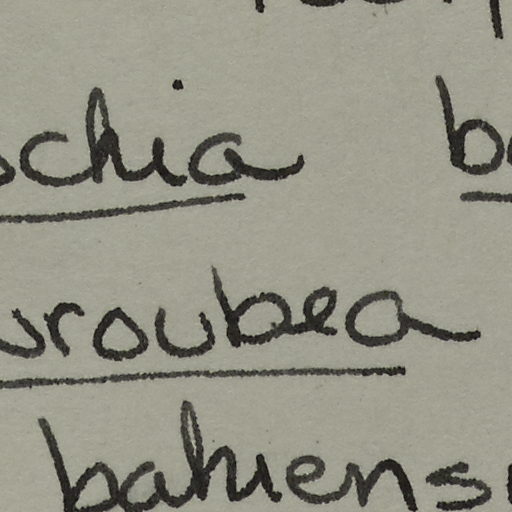 ochia b
uroubea
bahiens